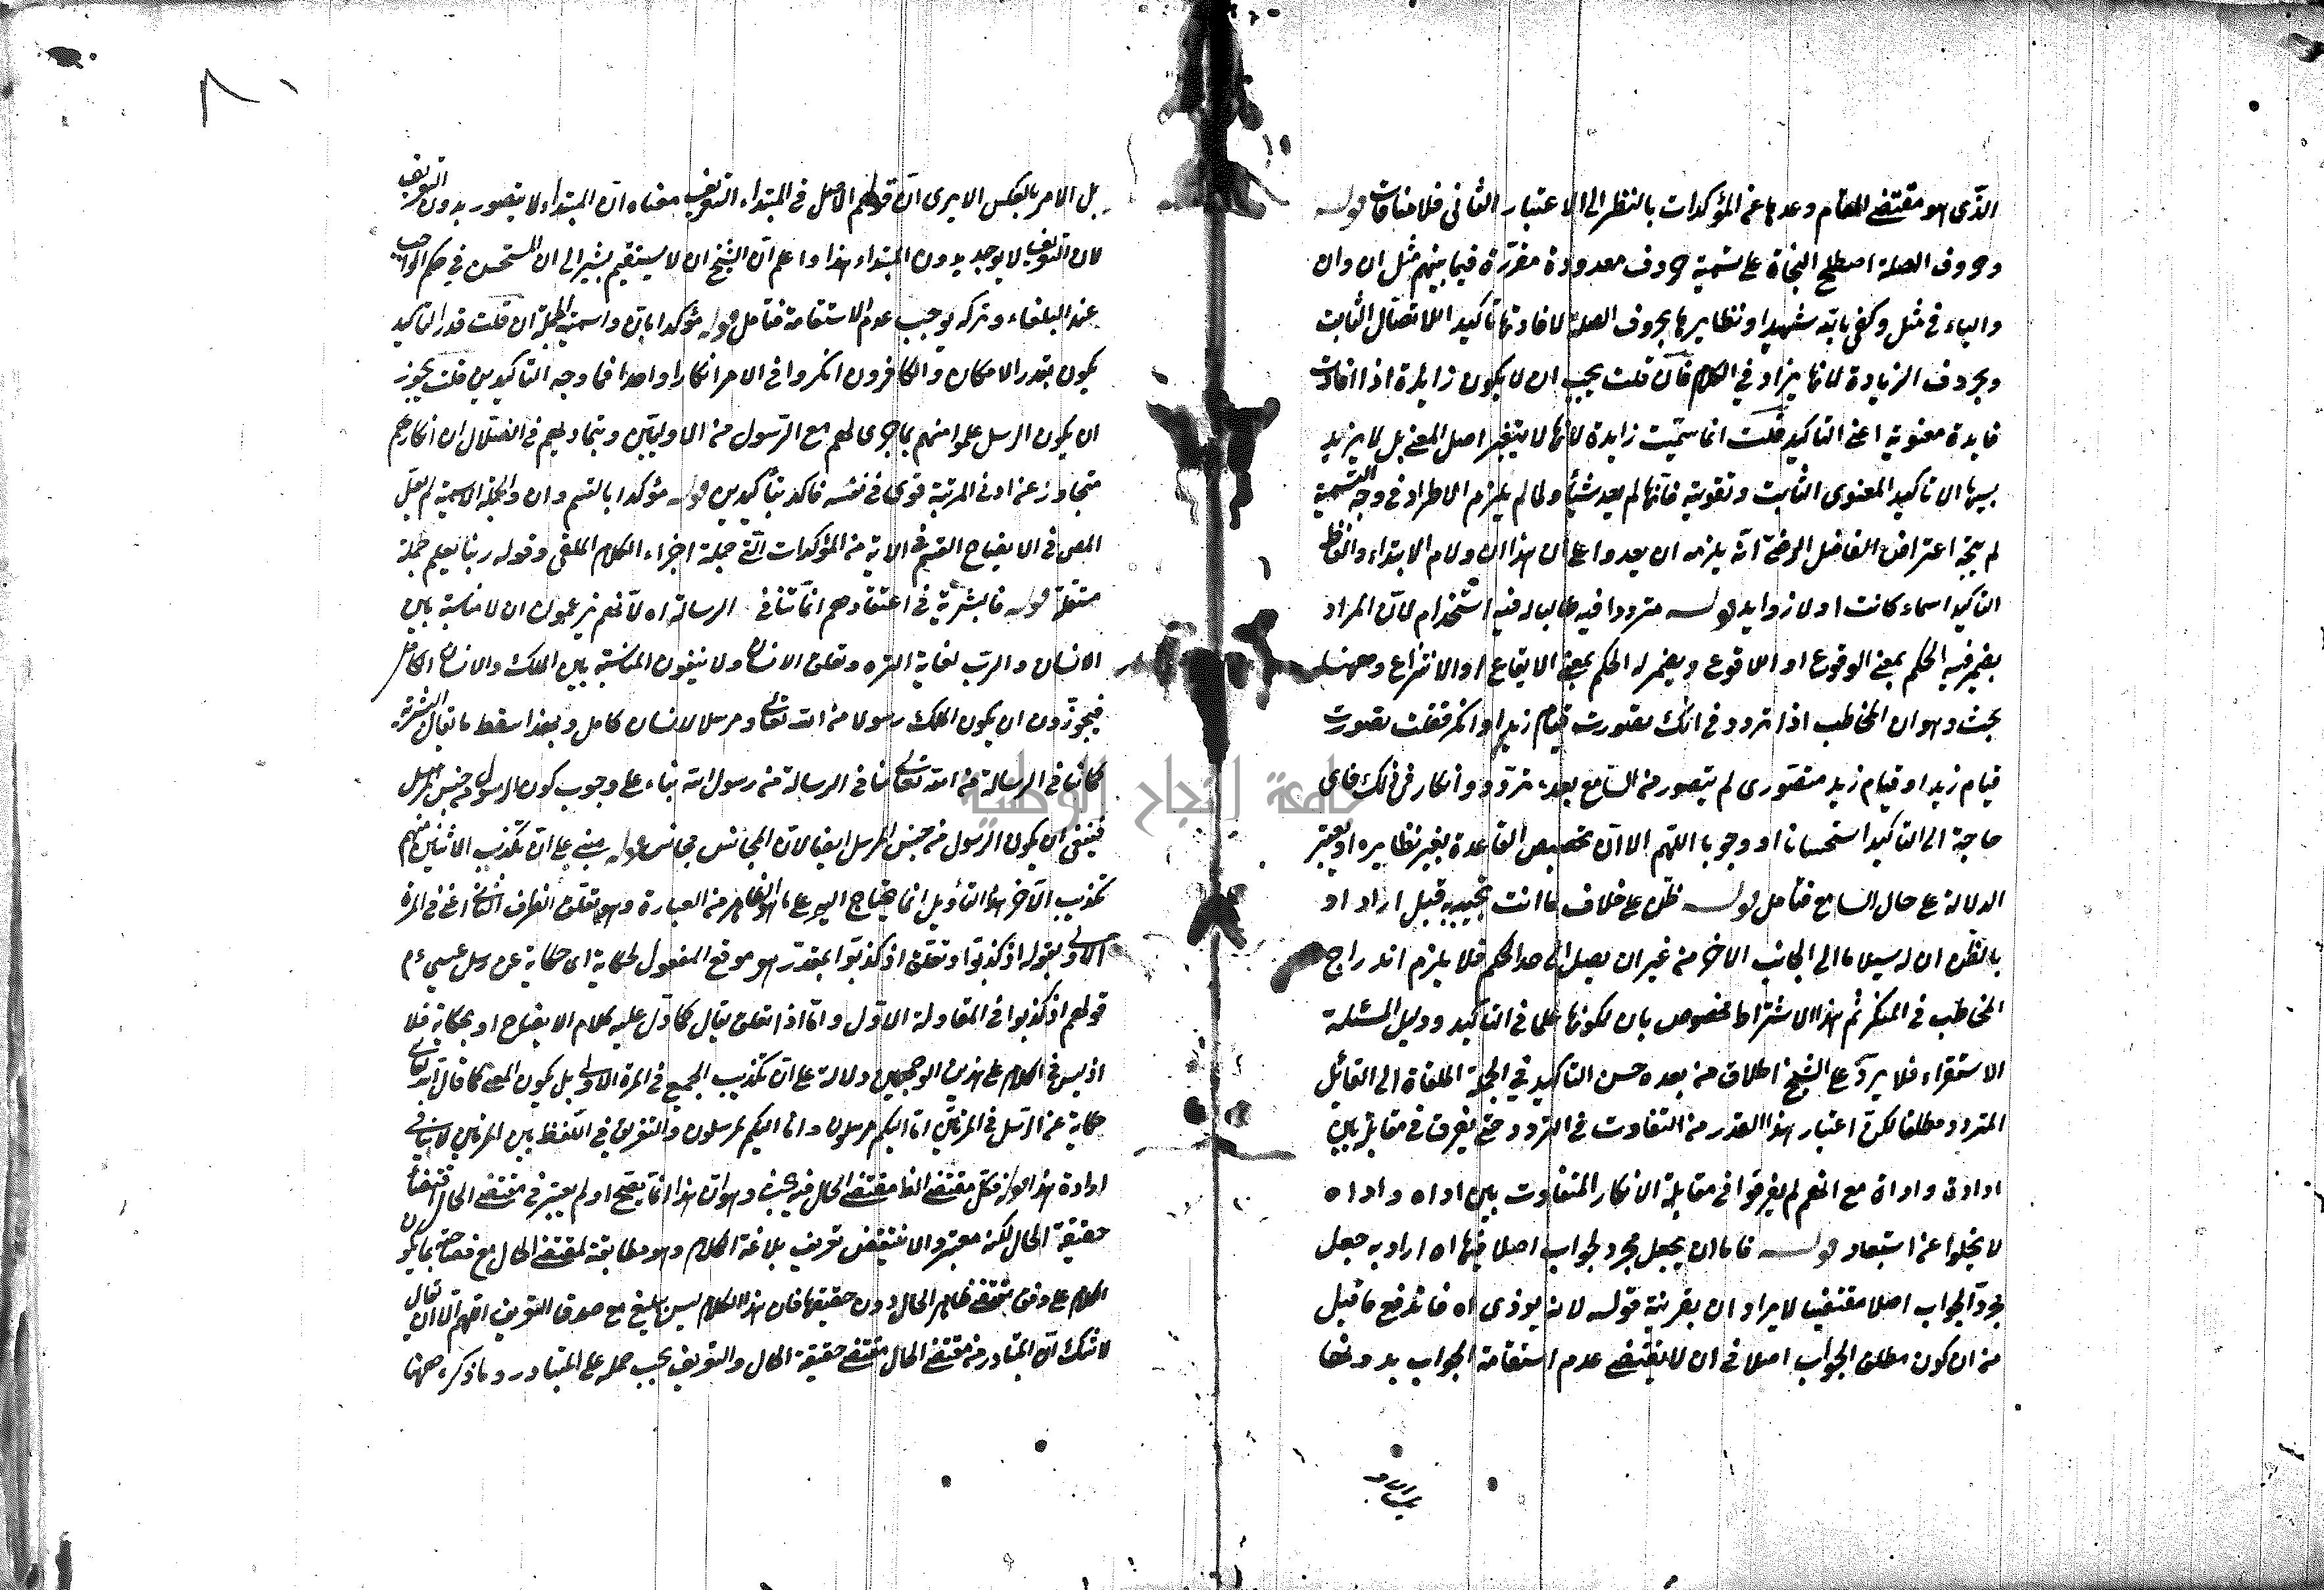 الذى هو مقتضى المقام وعدها من المؤكدات بالنظر الى الاعتبار الثانى فلا منافات قوله
وحروف الصلة اصطلح النحاة على تسمية حروف معدودة مقررة فيما بينهم مثل ان وان
والباء فى مثل وكفى بالله شهيدا ونظايرها بحروف الصلة لافادتها تأكيد الاتصال الثابت
وبحروف الزيادة لانها يزاد في الكلام فان قلت يجب ان لا يكون زايدة اذا افادت
فايدة معنوية اعنى التاكيد قلت انما سميت زايدة لانها لا يتغير اصل المعنى بل لا يزيد
بسببها الا تاكيد المعنوى الثابت وتقويته فانها لم يعد شيئا ولما لم يلزم الاطراد فى وجه التسمية
لم يتجه اعتراض الفاضل الرضى انه يلزمه ان يعدوا على هذا ان ولام الابتداء والفاظ
التاكيد اسماء كانت اولا زوايد قوله مترددا فيه طالبا له فيه استخدام لان المراد
بضمير فيه الحكم بمعنى الوقوع او اللاوقوع وبضمير له الحكم بمعنى الايقاع او الانتزاع وههنا
بحث وهو ان المخاطب اذا تردد فى انك تصورت قيام زيد او انكر فقلت تصورت
قيام زيد او قيام زيد متصورى لم يتصور من السامع بعده تردد وانكار فى ذلك فاى
حاجة الى التاكيد استحسانا او وجوبا اللهم الا ان تخصيص القاعدة بغير نظايره او يعتبر
الدلالة على حال السامع فتأمل قوله ظن على خلاف ما انت تجيبه به قيل اراد
بالظن ان له ميلا ما الى الجانب الاخر من غير ان يصل الى حد الحكم فلا يلزم اندراج
المخاطب فى المنكر ثم هذا الاشتراط مخصوص بان لكونها علما فى التاكيد ودليل المسئلة
الاستقراء فلا يرد على الشيخ اطلاق من بعده حسن التاكيد في الجملة الملقاة الى القائل
المتردد مطلقا لكن اعتبار هذا القدر من التفاوت فى التردد حتى يفرق فى مقابلة بين
اداة واداة مع انهم لم يفرقوا فى مقابلة الانكار المتفاوت بين اداة واداة
لا يخلوا عن استبعاد قوله فاما ان يجعل مجرد الجواب اصلا فيها اه اراد به جعل
مجرد الجواب اصلا مقتضيا لايراد ان بقرينة قوله لانه يؤدى اه فاندفع ما قيل
من ان كون مطلق الجواب اصلا فى ان لا يقتضى عدم استقامة الجواب بدونها
بل الامر
بل الامر بالعكس الا يرى ان قولهم الاصل فى المبتداء التعريف معناه ان المبتداء لا يتصور بدون التعريف
لا ان التعريف لا يوجد بدون المبتداء هذا واعلم ان الشيخ ان لا يستقيم يشير الى ان المستحسن في حكم الواجب
عند البلغاء وتركه يوجب عدم الاستقامة فتامل قوله مؤكدا بان واسمية الجملة ان قلت قدر التاكيد
يكون بقدر الامكان والكافرون انكروا فى الامر انكارا واحدا فما وجه التاكيدين قلت يجوز
ان يكون الرسل علموا منهم بما جرى لهم مع الرسول من الاوليين وتماديهم فى الضلال ان انكارهم
متجاوز عن ادنى المرتبة قوى فى نفسه فاكد بتاكيدين قوله مؤكدا بالقسم وان والجملة الاسمية لم يعد
المص فى الايضاح القسم فى الاية من المؤكدات التى جملة اجزاء الكلام الملقى وقوله ربنا يعلم جملة
مستقلة قوله فالبشرية في اعتقادهم انما تنافى الرسالة اه لانهم يزعمون ان لا مناسبة بين
الانسان والرب لغاية التنزه وتعلق الانسان ولا ينفون المناسبة بين الملك والانسان الكامل
فيجوزون ان يكون الملك رسولا من الله تعالى ومرسلا لانسان كامل وبهذا سقط ما يقال البشرية
كما تنافى الرسالة من الله تعالى تنافى الرسالة من رسول الله بناء على وجوب كون الرسول من جنس المرسل
فينبغى ان يكون الرسول من جنس المرسل ايضا لان المجانس مجانس قوله مبنى على ان تكذيب الاثنين منهم
تكذيب الآخر هذا التأويل انما يحتاج اليه على ما هو الظاهر من العبارة وهو تعلق الظرف الثانى اعنى فى المرة
الاولى بقوله اذ كذبوا وتعلق اذ كذبوا بمقدر هو موقع المفعول لحكاية اى حكاية عن رسل عيسى ءم
قولهم اذ كذبوا فى المقاولة الاول واما اذا تعلق بقال كما دل عليه كلام الايضاح او بحكاية فلا
اذ ليس فى الكلام على هذين الوجهين دلالة على ان تكذيب الجميع فى المرة الاولى بل يكون المعنى كما قال الله تعالى
حكاية عن الرسل فى المرتين انا اليكم مرسلون وانا اليكم لمرسلون والتفريق في اللفظ بين المرتين لا ينافى
ارادة هذا قوله فكل مقتضى الظا مقتضى الحال فيه بحث وهو ان هذا انما يصح او لم يعتبر فى مقتضى الحال اقتضاء
حقيقة الحال لكنه معتبر والا ينتقض تعريف بلاغة الكلام وهو مطابقة لمقتضى الحال مع فصاحته بما يكون
الكلام على وفق مقتضى ظاهر الحال دون حقيقتها فان هذا الكلام ليس ببليغ مع صدق التعريف اللهم الا ان يقال
لا شك ان المتبادر من مقتضى الحال مقتضى حقيقة الحال والتعريف يجب حمله على المتبادر وما ذكره ههنا
جامعة النجاح الوطنية